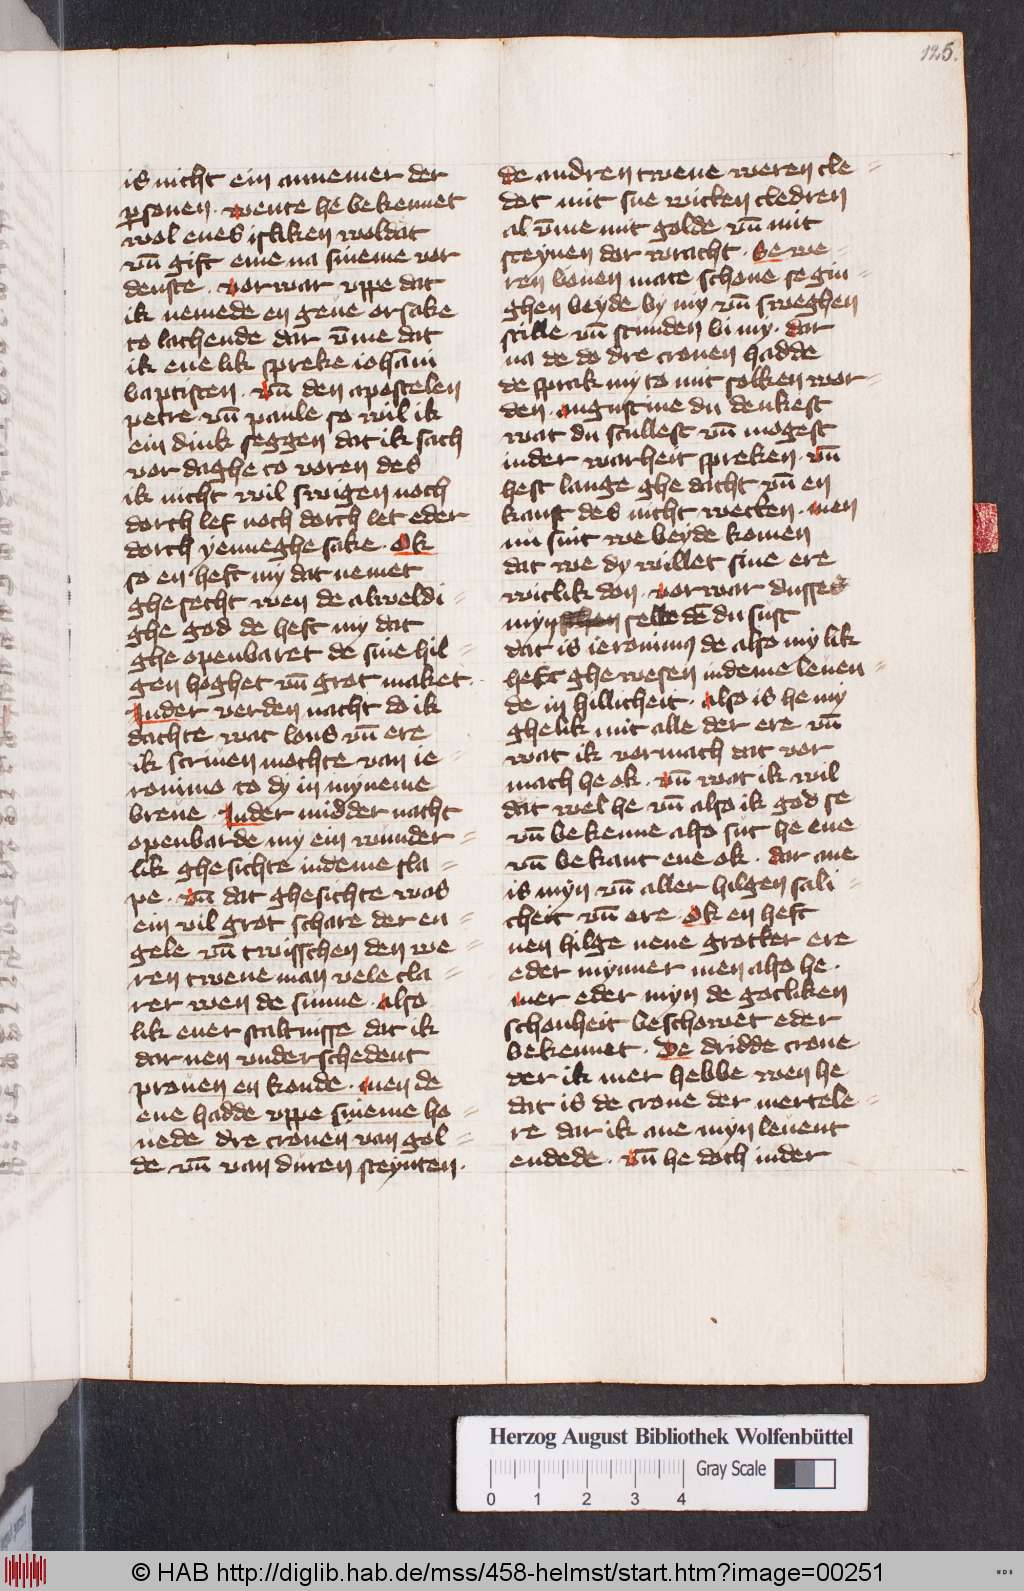 125.
is nicht ein annemer der
ꝑsonen. wente he bekennet
wol enes isliken woldat
vn̄ gift eme na sineme vor
denste. vorwar vppe dat
ik nemede en geue orsake
to lachende dar v̄me dat
ik ene lik spreke iohāni
baptisten. vn̄ den apostelen
petre vn̄ paule so wil ik
ein dink seggen dat ik sach
vor daghe to voren des
ik nicht wil swigen noch
dorch lef noch dorch let eder
dorch yenneghe sake. Ok
so en heft my dat nemet
ghe secht wen de alweldi-
ghe god de heft my dat
ghe openbaret de sine hil-
gen hoghet vn̄ grot maket.
Inder verden nacht do ik
dachte wat loues vn̄ ere
ik scriuen mochte van ie-
ronimo to dy in myneme
breue. Inder midder nacht
openbarde my ein wunder-
lik ghe sichte indeme sla-
pe. vn̄ dat ghesichte was
ein vil grot schare der en-
gele vn̄ twisschen den we-
ren twene man vele cla-
rer wen de sunne. also
lik ener staltnisse dat ik
dar nen vnderschedent
prouen en konde. men de
ene hadde vppe sineme ho-
uede dre cronen van gol-
de vn̄ van duren steynten.
de andren twene weren cle-
det mit sne witten cledren
al v̄me mit golde vn̄ mit
steynen dor wracht. Se we-
ren bouen mate schone se gin-
ghen beyde by my vn̄ sweghen
stille vn̄ stunden bi my. dar
na de do dre cronen hadde
de sprak my to mit solken wor-
den. augustine du denkest
wat du scullest vn̄ mogest
inder warheit spreken. vn̄
hest lange ghe dacht vn̄ en
kanst des nicht wecken. men
nu sint we beyde komen
dat we dy willet sine ere
witlik don. vorwar dusses
myn selle dē du sust
dat is ieronimus de also my lik
heft ghe wesen indeme leuen-
de in hillicheit. also is he my
ghelik mit alle der ere vn̄
wat ik vormach dat vor
mach he ok. vn̄ wat ik wil
dat wel he vn̄ also ik god se
vn̄ bekenne also sut he ene
vn̄ bekant ene ok. dar ane
is myn vn̄ aller hilgen sali-
cheit vn̄ ere. Ok en heft
nen hilge nene grotker ere
eder mynner men also he.
mer eder myn de gotliken
schonheit beschowet eder
bekennet. De dridde crone
der ik mer hebbe wen he
dat is de crone der mertele-
re dar ik ane myn leuent
endede. vn̄ he doch inder
Herzog August Bibliothek Wolfenbüttel
Gray Scale
0 1 2 3 4
© HAB http://diglib.hab.de/mss/458-helmst/start.htm?image=00251